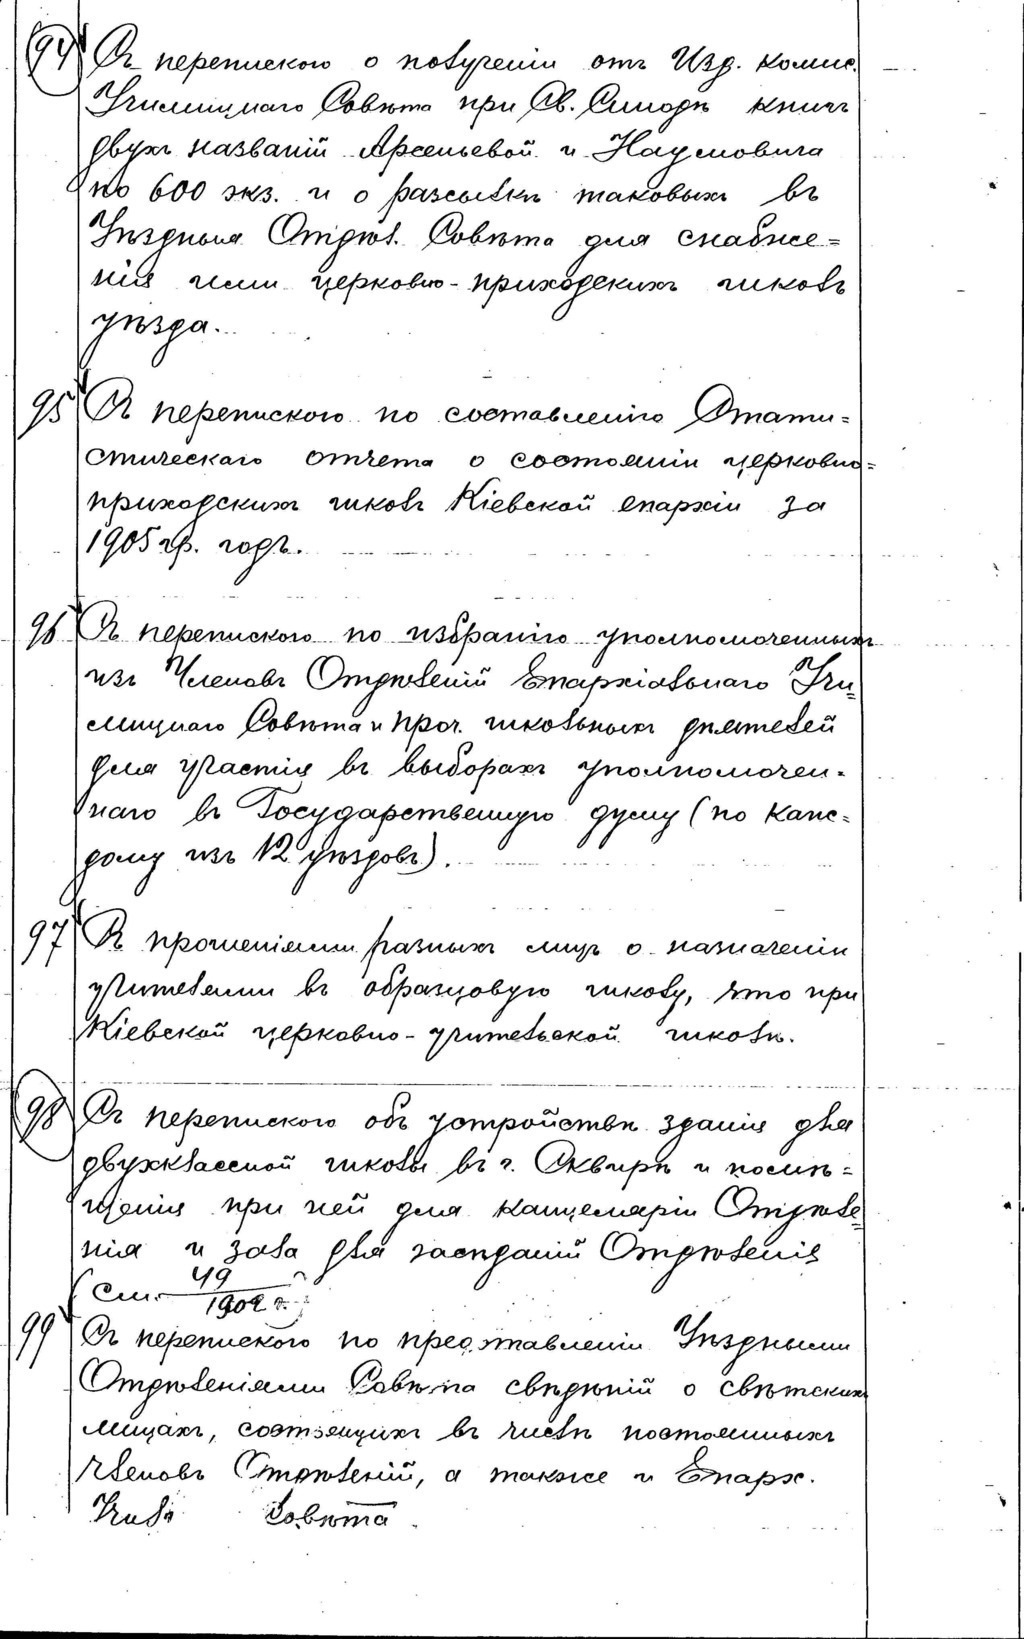 94 Съ перепискою о полученіи отъ Изд. комис.
Училищнаго Совѣта при Св. Синодѣ книгъ
двухъ названій Арсеньевой и Наумовича
по 600 экз. и о разсылкѣ таковыхъ въ
Уѣздныя Отдѣл. Совѣта для снабже=
нія ими церковно-приходскихъ школъ
уѣзда.
95 Съ перепискою по составленію Стати=
стическаго отчета о состояніи церковно=
приходскихъ школъ Кіевской епархіи за
1905 гр. годъ.
96 Съ перепискою по избранію уполномоченныхъ
изъ Членовъ Отдѣленій Епархіальнаго Учи=
лищнаго Совѣта и проч. школьныхъ дѣятелей
для участія въ выборахъ уполномочен=
наго въ Государственную думу (по каж=
дому изъ 12 уѣздовъ).
97 Съ прошеніями разныхъ лицъ о назначеніи
учителями въ образцовую школу, что при
Кіевской церковно-учительской школѣ.
98 Съ перепискою объ устройствѣ зданія для
двухклассной школы въ г. Сквирѣ и помѣ=
щенія при ней для канцеляріи Отдѣле=
нія и зала для засѣданій Отдѣленія
(см. 49/1902 г.)
99 Съ перепискою по представленіи Уѣздными
Отдѣленіями Совѣта свѣдѣній о свѣтскихъ
лицахъ, состоящихъ въ числѣ постоянныхъ
членовъ Отдѣленій, а также и Епарх.
Учил. Совѣта.